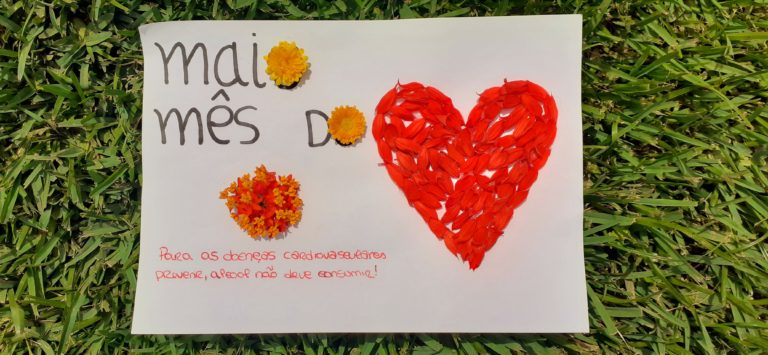 maio
mês do
Para as doenças cardiovasculares
prevenir, álcool não deve consumir!